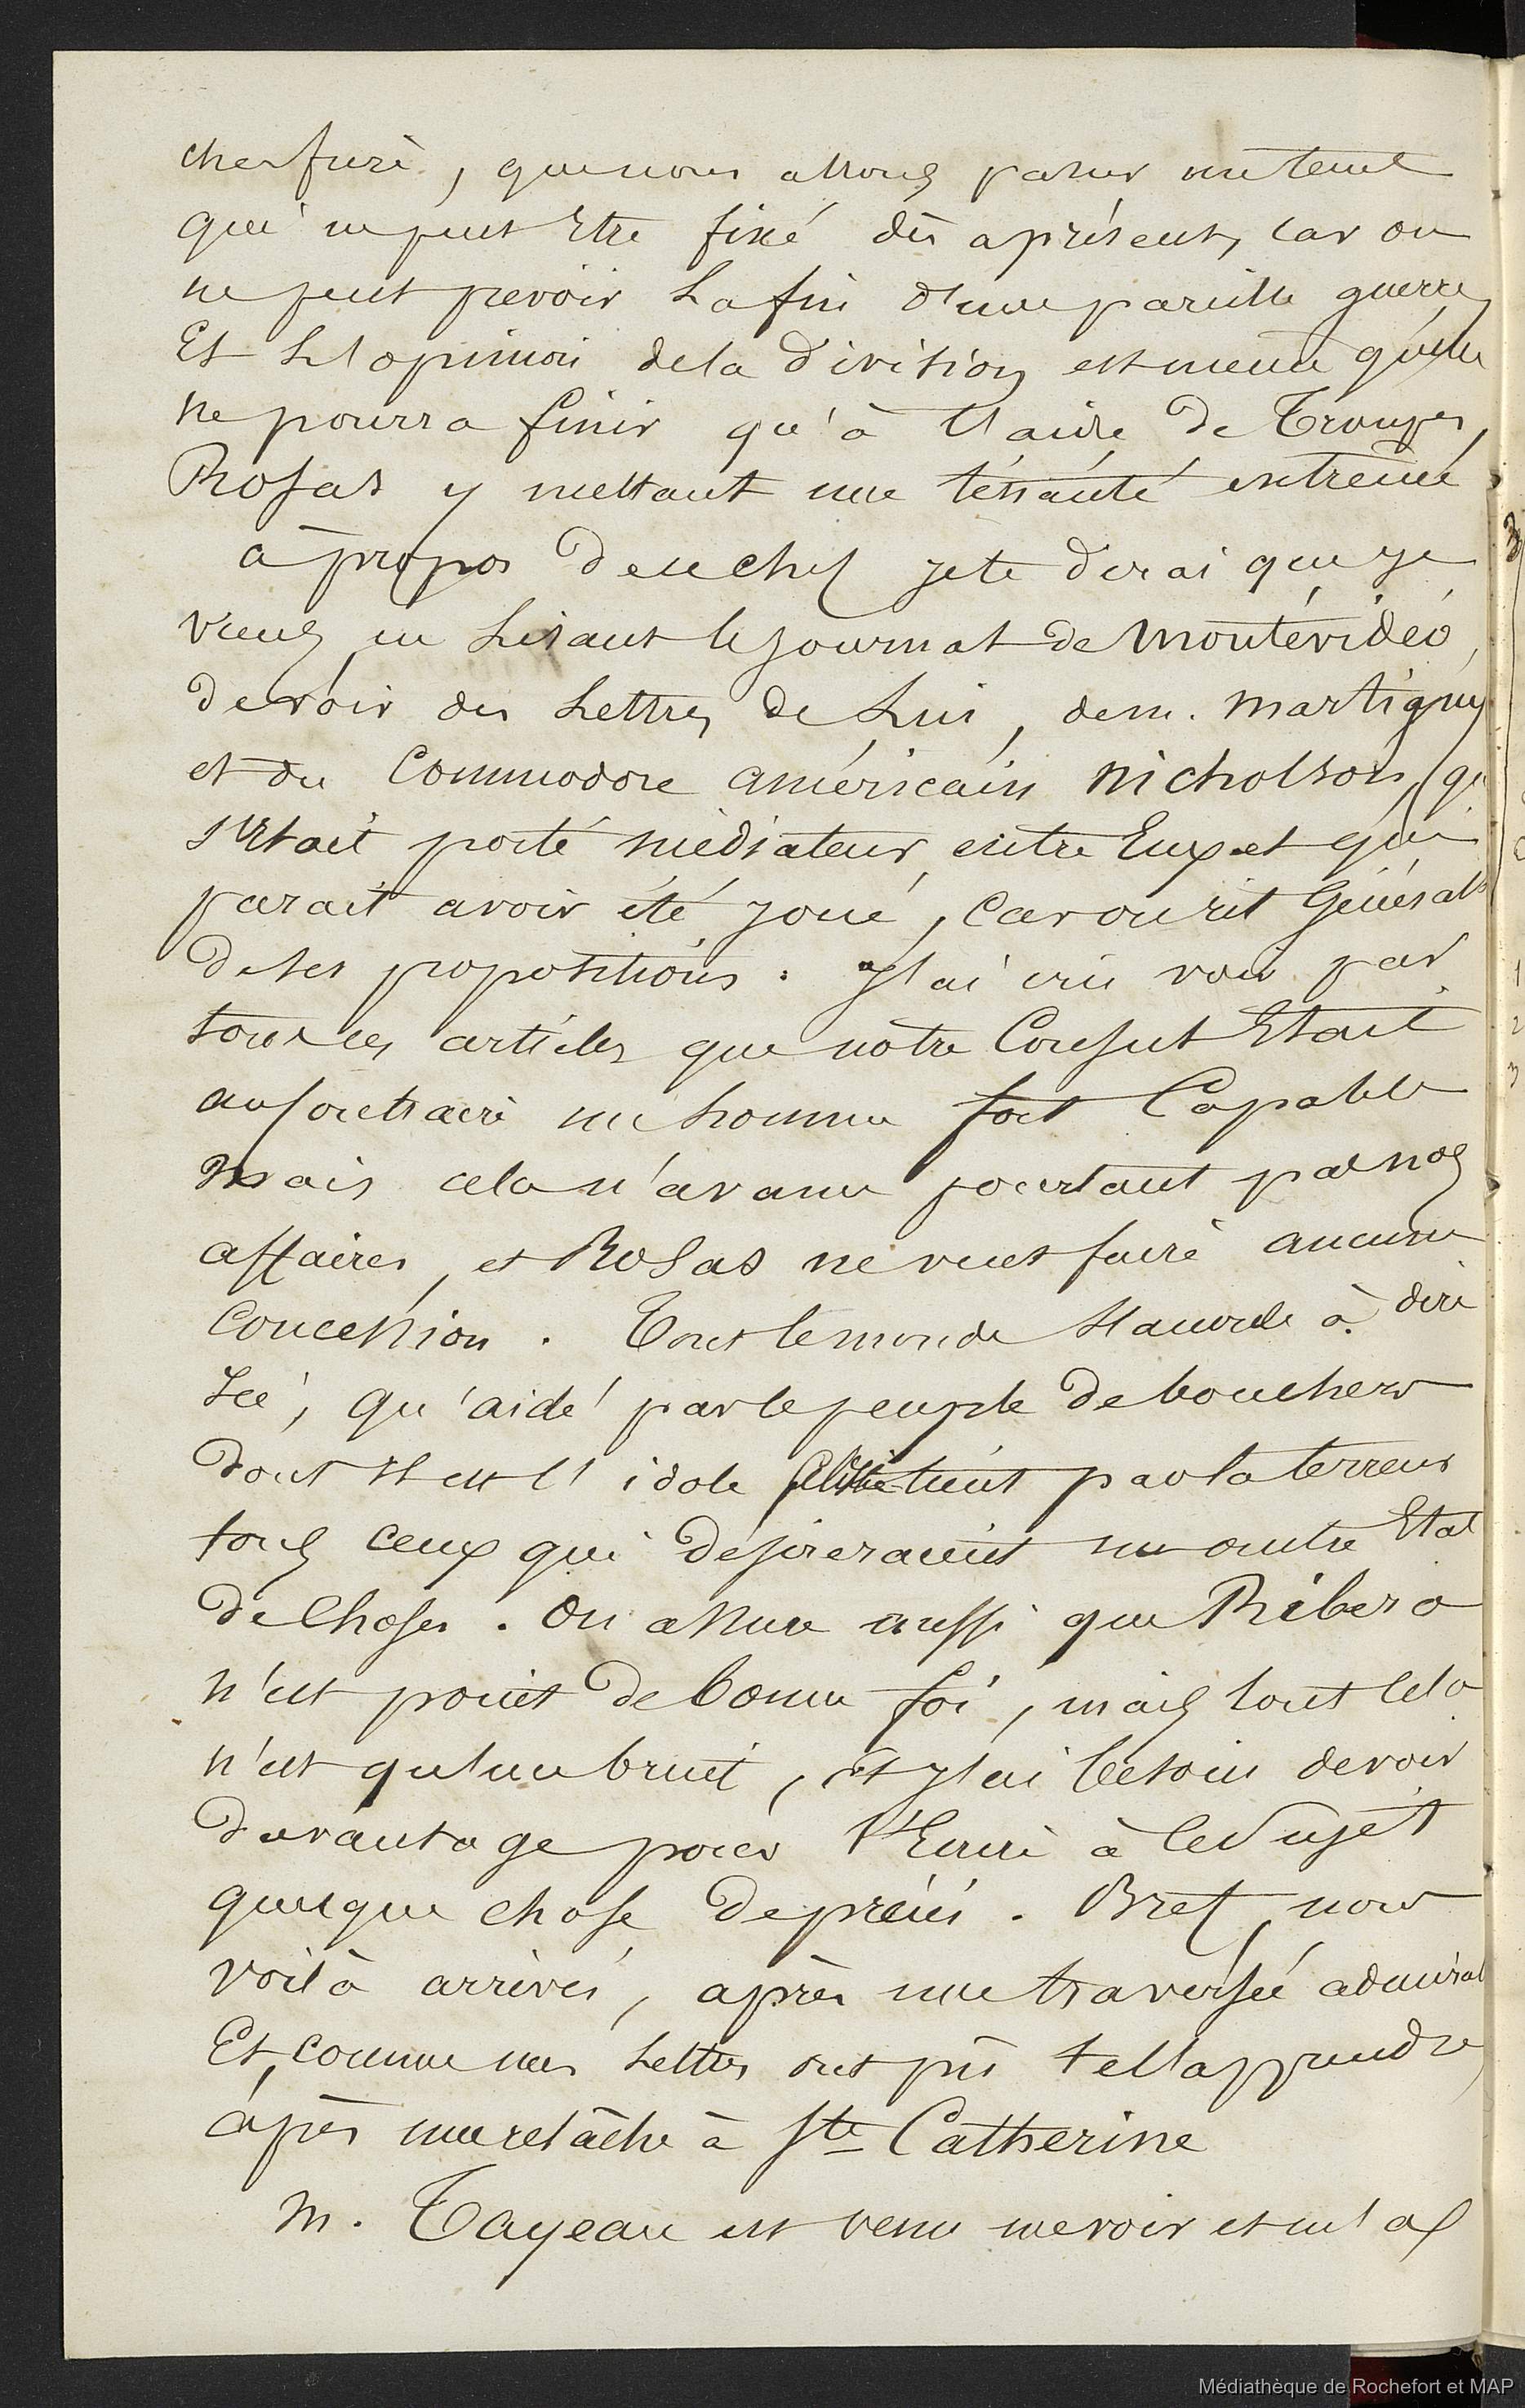 que nous allons passer un tems
qui ne peut Etre fixé dès aprésent, car on
ne peut prevoir La fin d'une pareille guerre,
Et L'opinion de la Division est meme qu'elle
ne pourra finir qu'à l'aide de Troupes,
Rosas y mettant une ténacité extreme
à propos de ce chef je te dirai que je
viens en Lisant le journal de Montévidéo,
de voir des Lettres de Lui, de m. Martigny
et du Commodore américain Nicholson, (qui
s'Etait porté médiateur entre Eux et qui
parait avoir été joué, car on rit Généralt
de ses propositions. J'ai cru voir par
tous ces articles que notre Consul Etait
au contraire un homme fort Capable
Mais cela n'avance pourtant pas nos
affaires, et Rosas ne veut faire aucune
Concession. Tout le monde s'accorde à dire
Ici, qu'aidé par le peuple de bouchers
dont Il est l'idole tient par la terreur
tous ceux qui désireraient un autre Etat
de Choses. On assure aussi que Ribera
n'est point de bonne foi, mais tout cela
n'est qu'un bruit, et j'ai besoin de voir
davantage pour t'Ecrire à ce Sujet
quelque chose de précis. Bref, nous
voilà arrivés, après une traversée admirabl
Et, comme mes Lettres ont pû te l'apprendre,
après une relâche à Ste Catherine
M. Tayeau est venu me voir et m'a